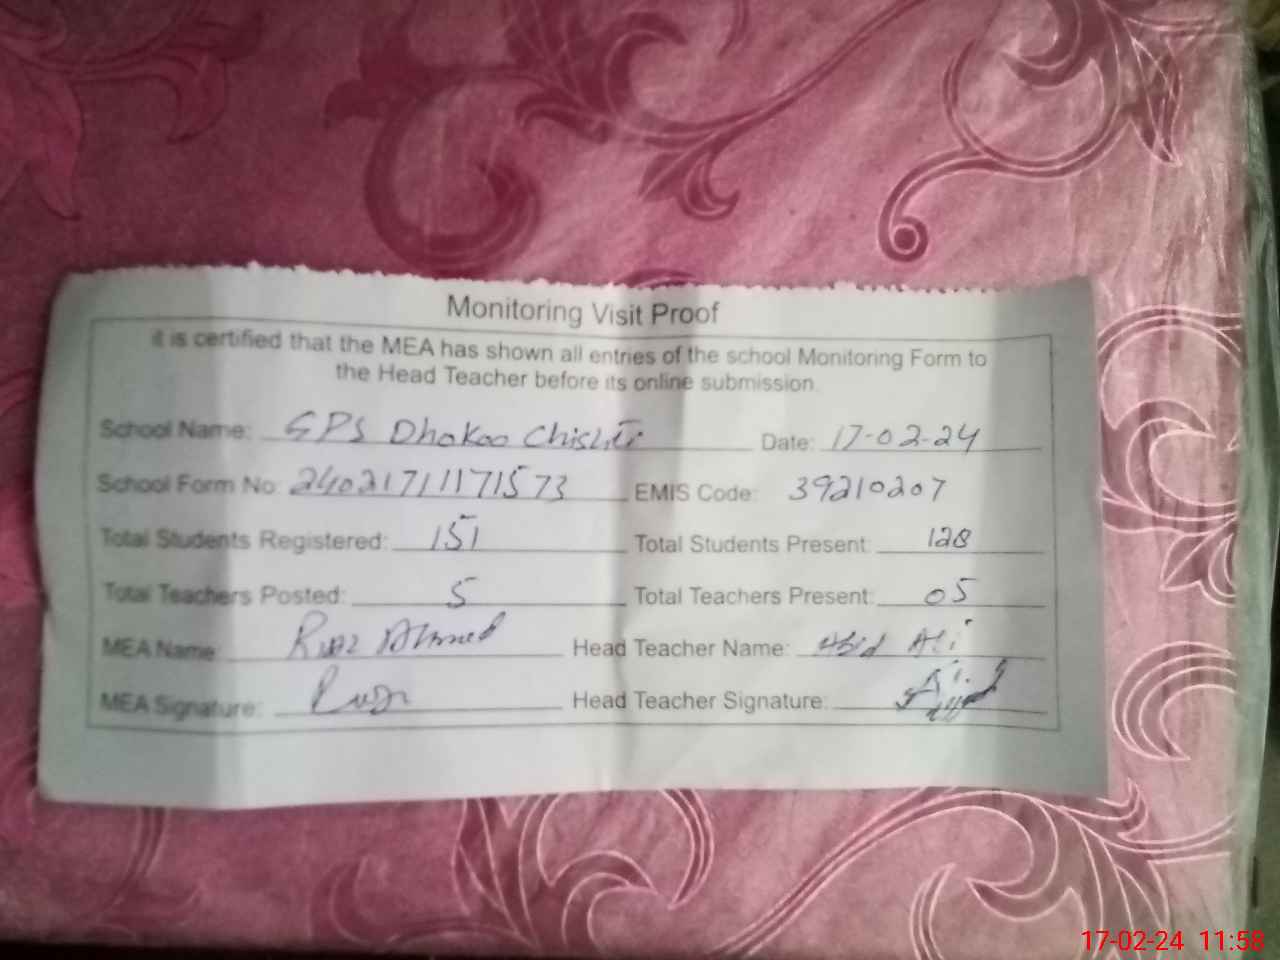 Monitoring Visit Proof
it is certified that the MEA has shown all entries of the school Monitoring Form to
the Head Teacher before its online submission.
School Name: GPS Dhakoo Chishti Date: 17-02-24
School Form No: 240217111171573 EMIS Code: 39210207
Total Students Registered: 151 Total Students Present: 128
Total Teachers Posted: 5 Total Teachers Present: 05
MEA Name: Riaz Ahmed Head Teacher Name: Abid Ali
MEA Signature: Head Teacher Signature:
17-02-24 11:58